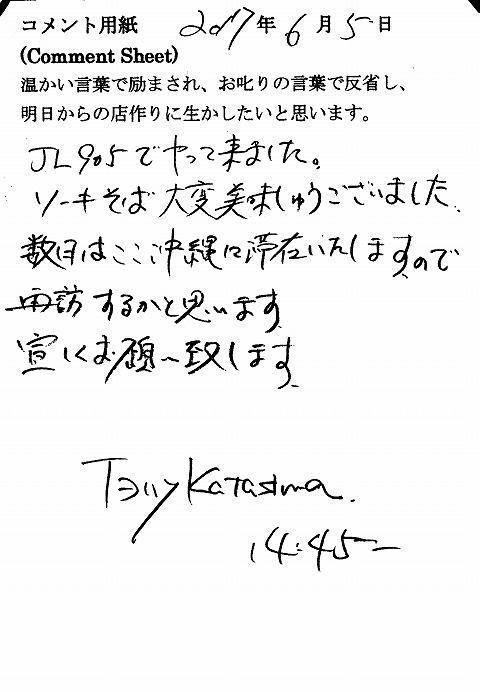 コメント用紙 2017年6月5日
(Comment Sheet)
温かい言葉で励まされ、お叱りの言葉で反省し、
明日からの店作りに生かしたいと思います。
JL905でやって来ました。
ソーキそば大変美味しゅうございました.
数日はここ沖縄に滞在いたしますので
再訪するかと思います.
宣しくお願い致します.
Katasima.
14:45